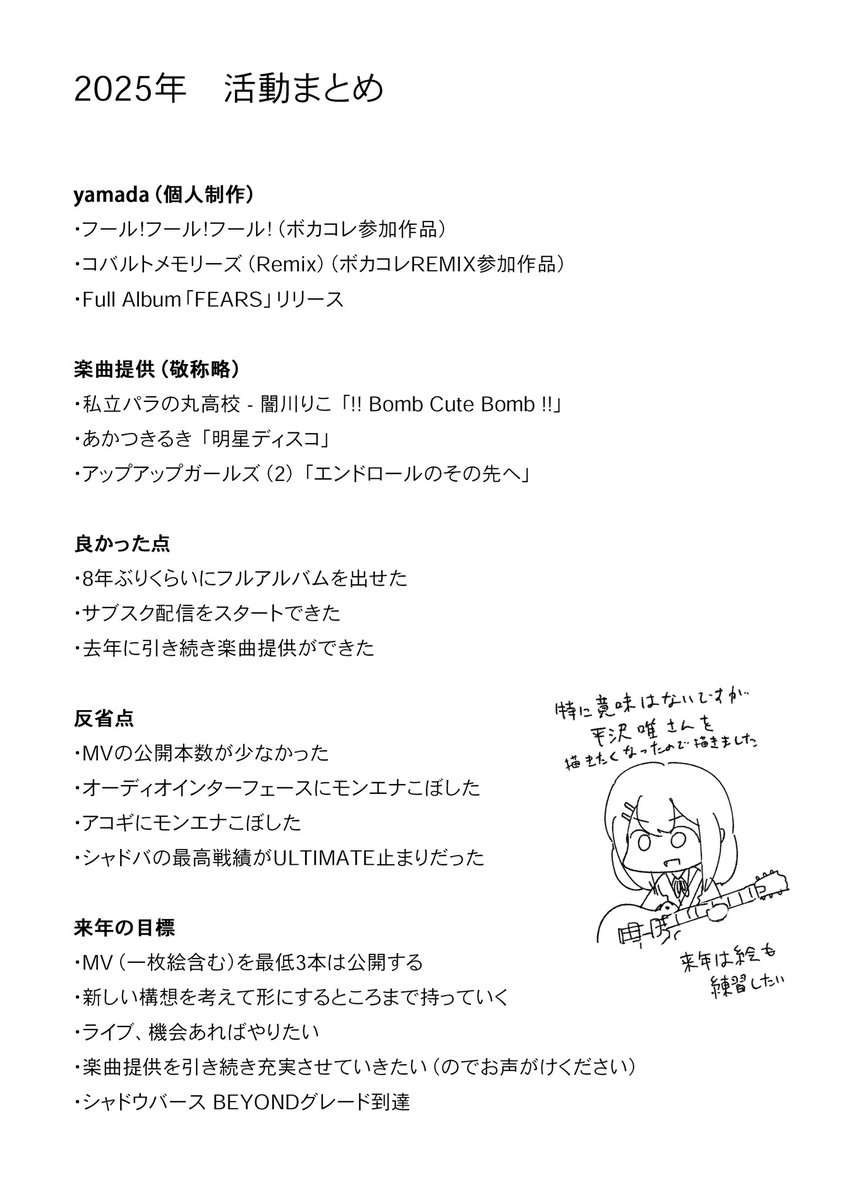 2025年　活動まとめ
yamada（個人制作）
・フール!フール!フール!（ボカコレ参加作品）
・コバルトメモリーズ（Remix）（ボカコレREMIX参加作品）
・Full Album「FEARS」リリース
楽曲提供（敬称略）
・私立パラの丸高校 - 闇川りこ「!! Bomb Cute Bomb !!」
・あかつきるき「明星ディスコ」
・アップアップガールズ（2）「エンドロールのその先へ」
良かった点
・8年ぶりくらいにフルアルバムを出せた
・サブスク配信をスタートできた
・去年に引き続き楽曲提供ができた
反省点
・MVの公開本数が少なかった
・オーディオインターフェースにモンエナこぼした
・アコギにモンエナこぼした
・シャドバの最高戦績がULTIMATE止まりだった
特に意味はないですが
平沢唯さんを
描きたくなったので描きました
来年は絵も
練習したい
来年の目標
・MV（一枚絵含む）を最低3本は公開する
・新しい構想を考えて形にするところまで持っていく
・ライブ、機会あればやりたい
・楽曲提供を引き続き充実させていきたい（のでお声がけください）
・シャドウバース BEYONDグレード到達